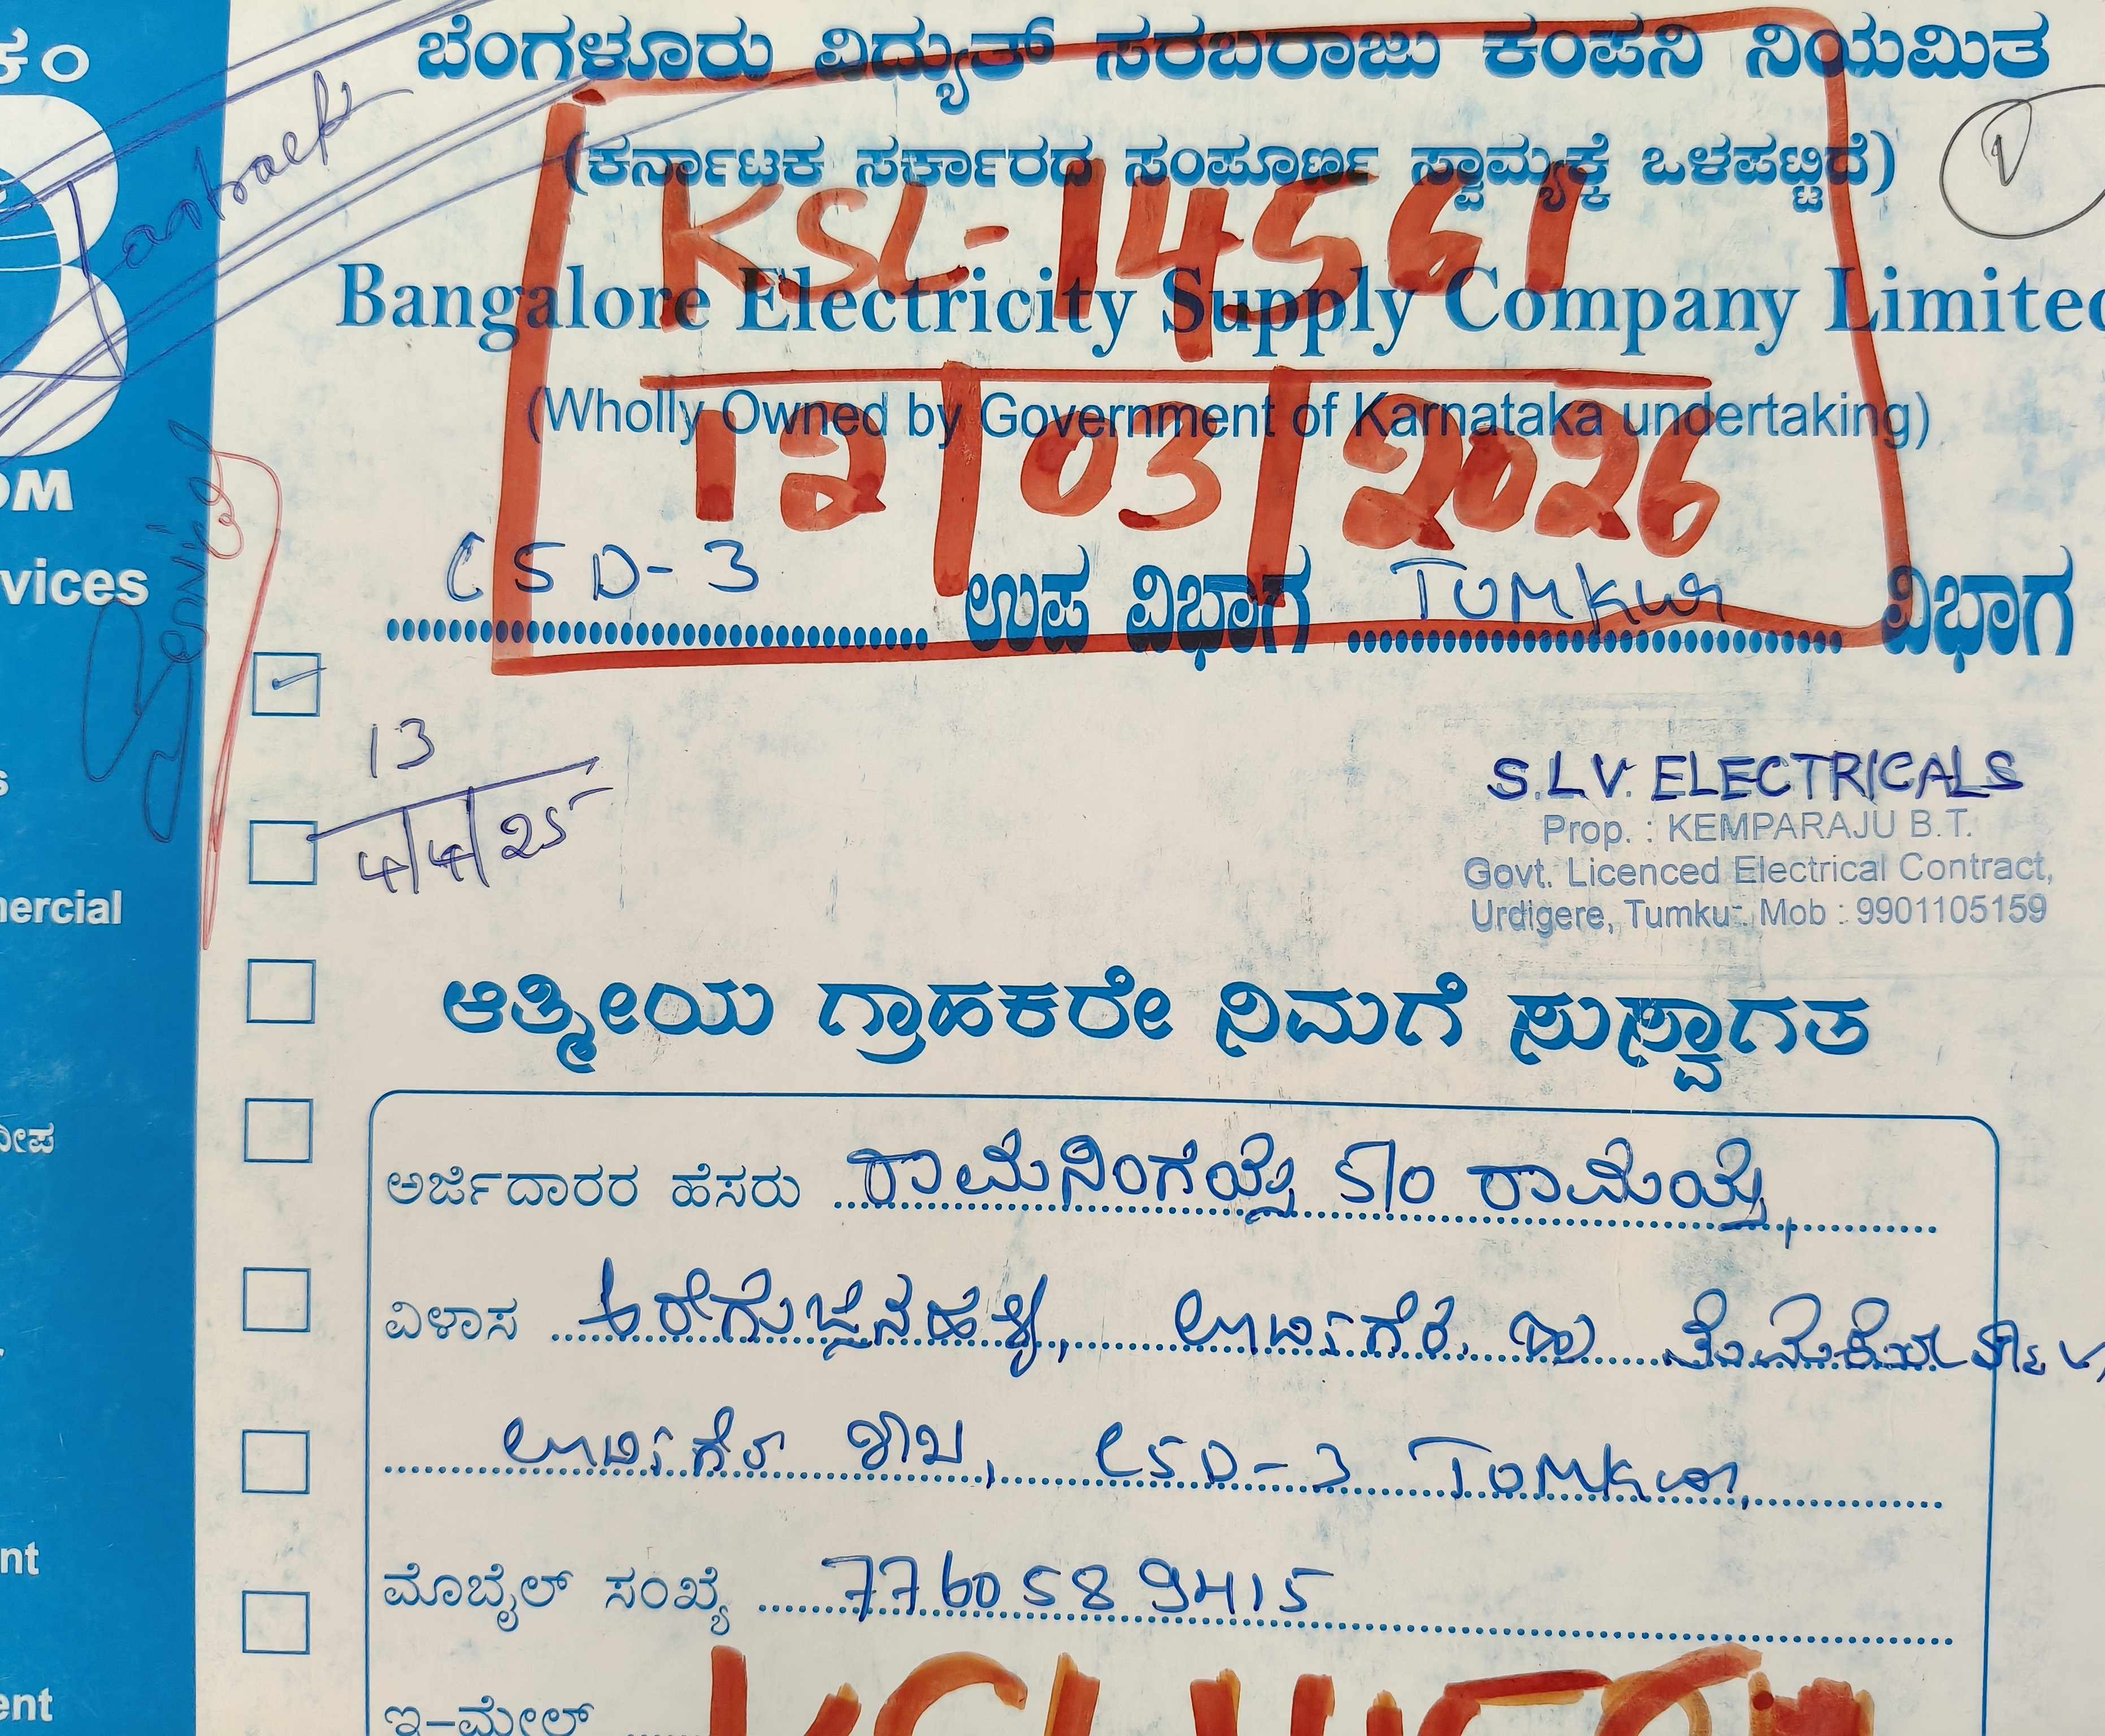 ಕಂ
ಬೆಂಗಳೂರು ವಿದ್ಯುತ್ ಸರಬರಾಜು ಕಂಪನಿ ನಿಯಮಿತ
(ಕರ್ನಾಟಕ ಸರ್ಕಾರದ ಸಂಪೂರ್ಣ ಸ್ವಾಮ್ಯಕ್ಕೆ ಒಳಪಟ್ಟಿದೆ)
KSL-14561
Bangalore Electricity Supply Company Limited
(Wholly Owned by Government of Karnataka undertaking)
12/03/2026
OM
vices
CSD-3 ಉಪ ವಿಭಾಗ Tumkur ವಿಭಾಗ
13
4/4/25
S.L.V. ELECTRICALS
Prop. : KEMPARAJU B.T.
Govt. Licenced Electrical Contract,
Urdigere, Tumkur. Mob : 9901105159
s
mercial
ಆತ್ಮೀಯ ಗ್ರಾಹಕರೇ ನಿಮಗೆ ಸುಸ್ವಾಗತ
ದೀಪ
ಅರ್ಜಿದಾರರ ಹೆಸರು ರಾಮನಿಂಗಯ್ಯ S/o ರಾಮಯ್ಯ,
ವಿಳಾಸ ಅರೇಗುಜ್ಜನಹಳ್ಳಿ, ಊರ್ಡಿಗೆರೆ
ಊರ್ಡಿಗೆರೆ ಶಾಖೆ, CSD-3 Tumkur,
nt
ಮೊಬೈಲ್ ಸಂಖ್ಯೆ 7760589415
ent
ಇ-ಮೇಲ್